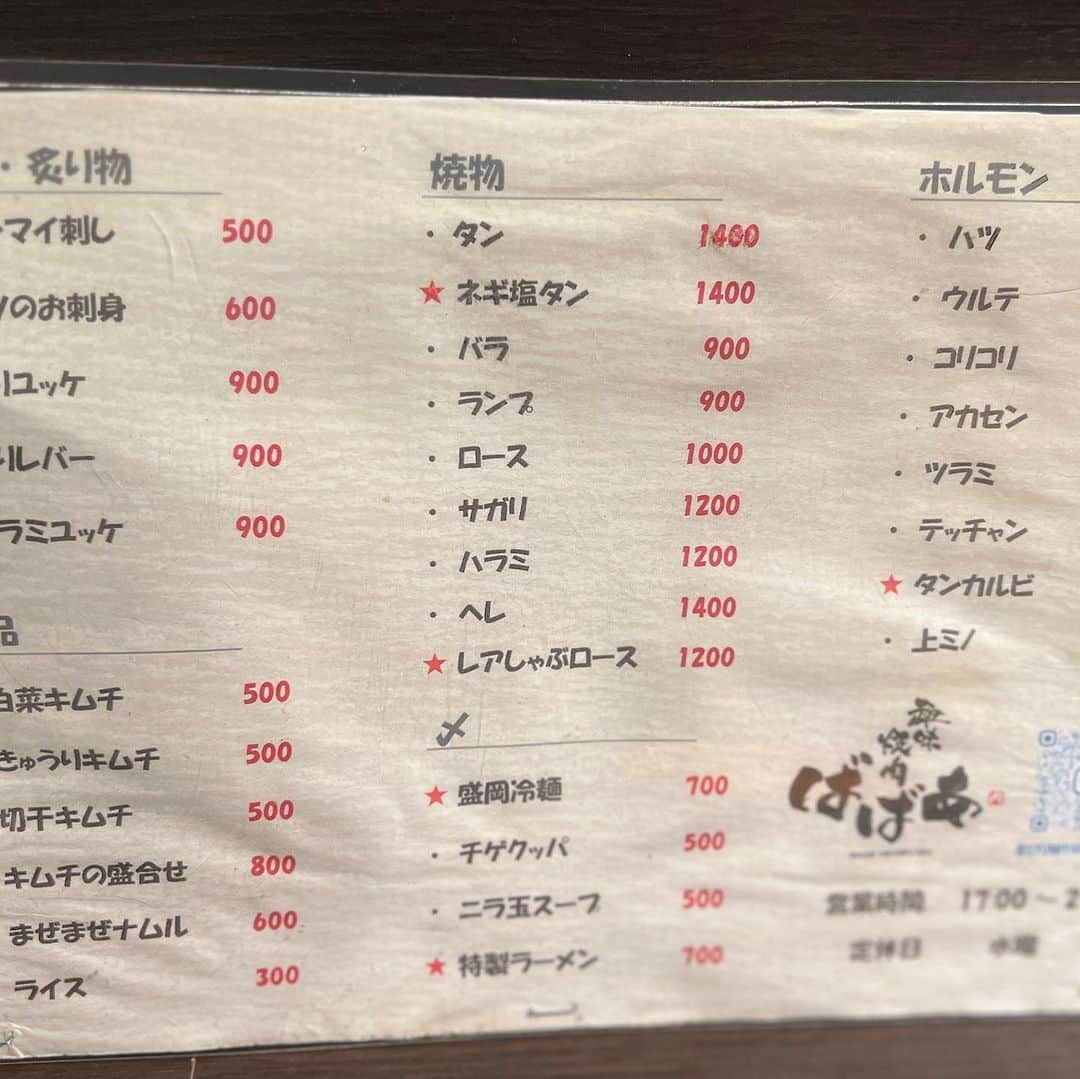 ・炙り物
マイ刺し 500
のお刺身 600
りユッケ 900
りレバー 900
ラミユッケ 900
品
白菜キムチ 500
きゅうりキムチ 500
切干キムチ 500
キムチの盛合せ 800
まぜまぜナムル 600
ライス 300
焼物
・タン 1400
★ネギ塩タン 1400
・バラ 900
・ランプ 900
・ロース 1000
・サガリ 1200
・ハラミ 1200
・ヘレ 1400
★レアしゃぶロース 1200
〆
★盛岡冷麺 700
・チゲクッパ 500
・ニラ玉スープ 500
★特製ラーメン 700
ホルモン
・ハツ
・ウルテ
・コリコリ
・アカセン
・ツラミ
・テッチャン
★タンカルビ
・上ミノ
焼肉
ばばあ
営業時間 17:00～2
定休日 水曜